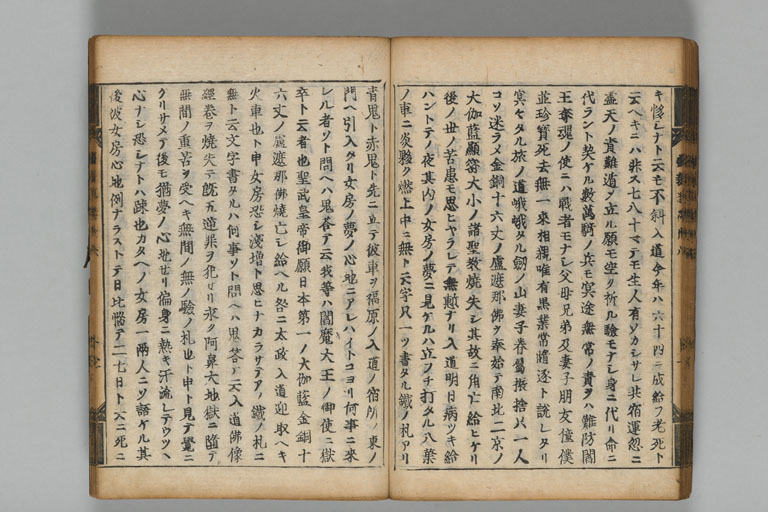 キ悸シナト云モ不斜入道今年ハ六十四ニ成給フ老死ト
云ヘキニハ非ス七八十マテモ生人有ソカシサレ共宿運忽ニ
盡天ノ責難遁シ立ル願モ空ク祈ル驗モナシ身ニ代リ命ニ
代ラント契ケル數萬騎ノ兵モ冥途無常ノ責ヲハ難防閻
王奪魂ノ使ニハ戰者モナシ父母兄弟及妻子朋友僮僕
並珍寶死去無一來相親唯有黑業常隨逐ト説レタリ
冥々タル旅ノ道峨々タル劔ノ山妻子眷屬振捨只一人
コソ迷ラメ金銅十六丈ノ盧遮那佛ヲ奉始テ南北二京ノ
大伽藍顯密大小ノ諸聖教燒失シ其故ニ角亡給ヒケリ
後ノ世ノ苦患モ思ヒヤラレテ無慙ナリ入道明日病ツキ給
ハントテノ夜其内ノ女房ノ夢ニ見ケルハ立フチ打タル八葉
ノ車ニ炎夥ク燃上中ニ無ト云字只一ツ書タル鐵ノ札アリ
青鬼ト赤鬼ト先ニ立テ彼車ヲ福原ノ入道ノ宿所ノ東ノ
門ヘ引入タリ女房ノ夢ノ心地ニアレハイトコヨリ何事ニ來
レル者ソト問ヘハ鬼答テ云我等ハ閻魔大王ノ御使ニ獄
卒ト云者也聖武皇帝御願日本第一ノ大伽藍金銅十
六丈ノ盧遮那佛燒亡シ給ヘル咎ニ太政入道迎取ヘキ
火車也ト申女房恐シ淺増ト思ヒナカラサテアノ鐵ノ札ニ
無ト云文字書タルハ何事ソト問ヘハ鬼答テ云入道佛像
經巻ヲ燒失テ既五逆罪ヲ犯セリ永ク阿鼻大地獄ニ墮テ
無間ノ重苦ヲ受ヘキ無間ノ無ノ驗ノ札也ト申ト見テ覺ニ
クリサメテ後モ猶夢ノ心地セリ徧身ニ熱キ汗流レテウツヘ
心ナシ恐シナトハ疎也カタヘノ女房一兩人ニソ語ケル其
後彼女房心地例ナラストテ日比惱テ二七日ト云ニ死ニ